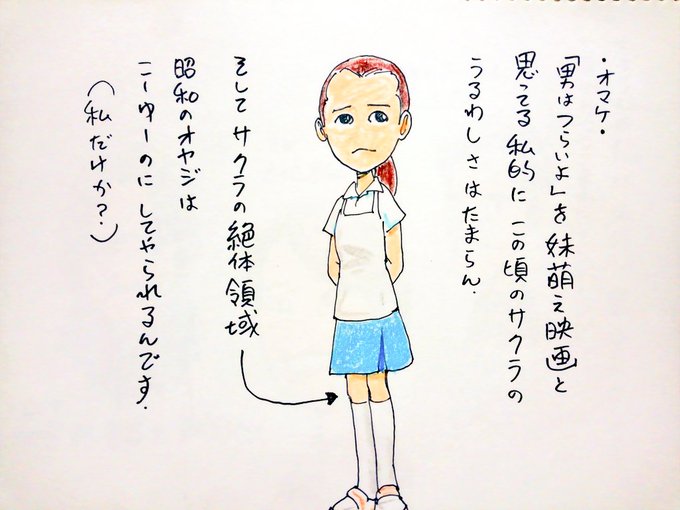 ・オマケ・
「男はつらいよ」を妹萌え映画と
思ってる私的にこの頃のサクラの
うるわしさはたまらん.
そしてサクラの絶体領域
昭和のオヤジは
こーゆーのにしてやられるんです.
(私だけか?)